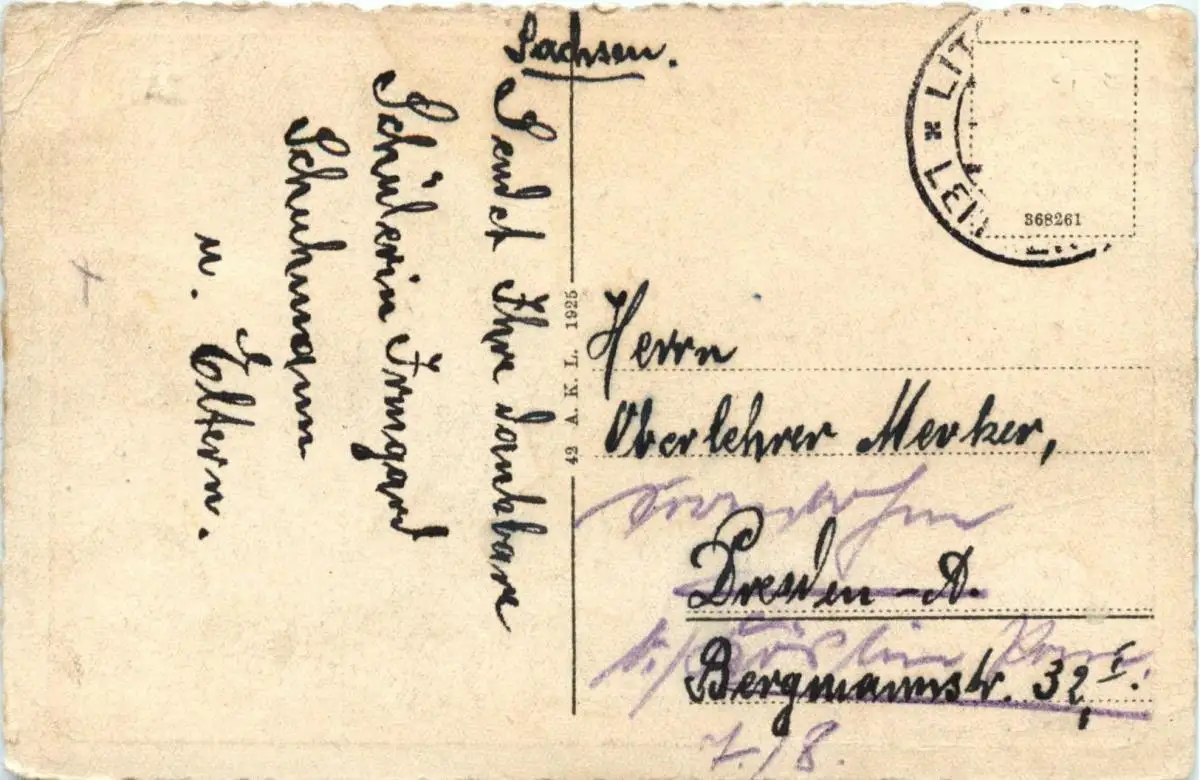 Sachsen.
Sendet Ihre dankbare
Schülerin Irmgard
Schuhmann
u. Eltern.
42 A. K. L. 1925
LIT
LEI
368261
Herrn
Oberlehrer Merker,
Dresden-A.
Bergmannstr. 32, I.